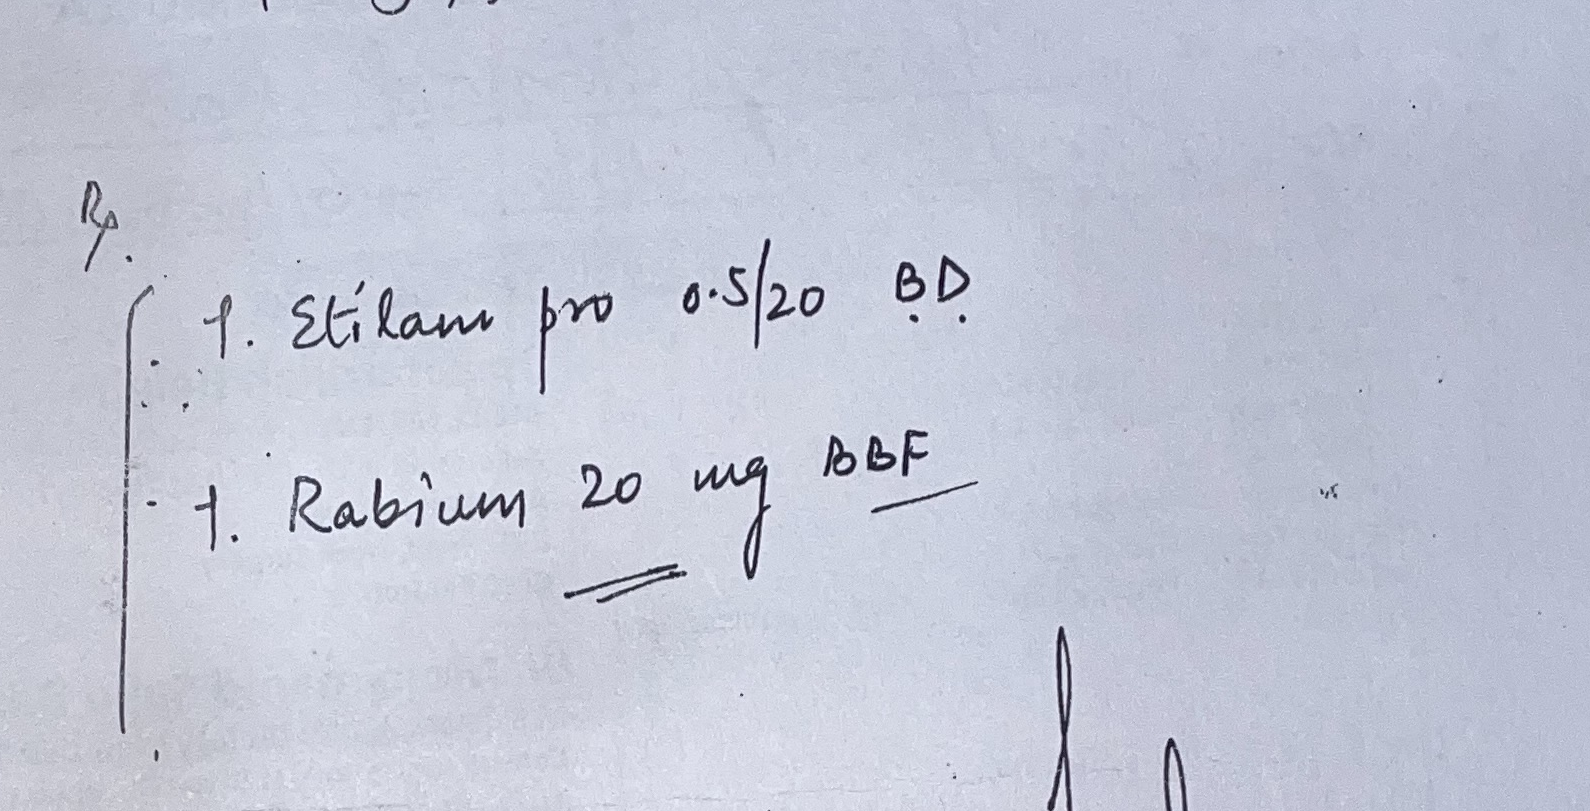 Rx.
T. Etilam pro 0.5/20 BD
T. Rabium 20 mg BBF